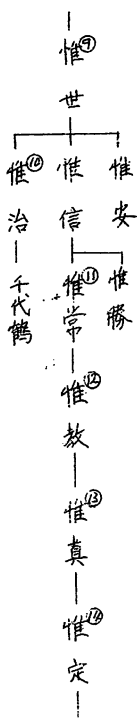 惟世⑨
惟安
惟信
惟治⑩
惟勝
惟常⑪
千代鶴
惟教⑫
惟真⑬
惟定⑭